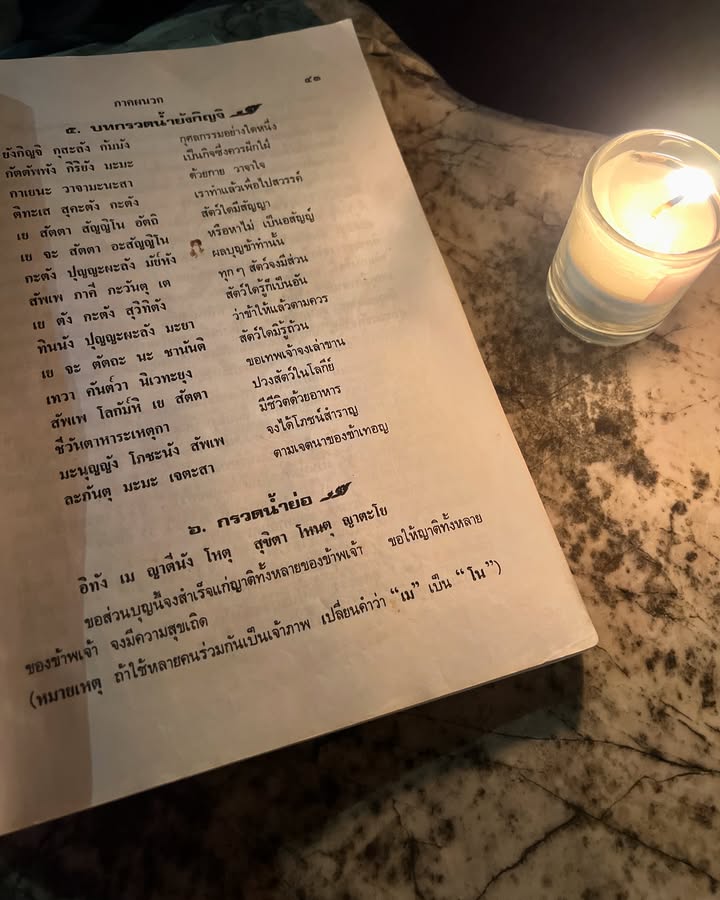 ภาคผนวก ๔๓
๕. บทกรวดน้ำยังกิญจิ
ยังกิญจิ กุสะลัง กัมมัง กุศลกรรมอย่างใดหนึ่ง
กัตตัพพัง กิริยัง มะมะ เป็นกิจซึ่งควรฝักใฝ่
กาเยนะ วาจามะนะสา ด้วยกาย วาจาใจ
ติทะเส สุคะตัง กะตัง เราทำแล้วเพื่อไปสวรรค์
เย สัตตา สัญญิโน อัตถิ สัตว์ใดมีสัญญา
เย จะ สัตตา อะสัญญิโน หรือหาไม่ เป็นอสัญญ์
กะตัง ปุญญะผะลัง มัยหัง ผลบุญข้าทำนั้น
สัพเพ ภาคี ภะวันตุ เต ทุก ๆ สัตว์จงมีส่วน
เย ตัง กะตัง สุวิทิตัง สัตว์ใดรู้ก็เป็นอัน
ทินนัง ปุญญะผะลัง มะยา ว่าข้าให้แล้วตามควร
เย จะ ตัตถะ นะ ชานันติ สัตว์ใดมิรู้ถ้วน
เทวา คันต์วา นิเวทะยุง ขอเทพเจ้าจงเล่าขาน
สัพเพ โลกัม์หิ เย สัตตา ปวงสัตว์ในโลกีย์
ชีวันตาหาระเหตุกา มีชีวิตด้วยอาหาร
มะนุญญัง โภชะนัง สัพเพ จงได้โภชน์สำราญ
ละภันตุ มะมะ เจตะสา ตามเจตนาของข้าเทอญ
๖. กรวดน้ำย่อ
อิทัง เม ญาตีนัง โหตุ สุขิตา โหนตุ ญาตะโย
ขอส่วนบุญนี้จงสำเร็จแก่ญาติทั้งหลายของข้าพเจ้า ขอให้ญาติทั้งหลาย
ของข้าพเจ้า จงมีความสุขเถิด
(หมายเหตุ ถ้าใช้หลายคนร่วมกันเป็นเจ้าภาพ เปลี่ยนคำว่า “เม” เป็น “โน”)